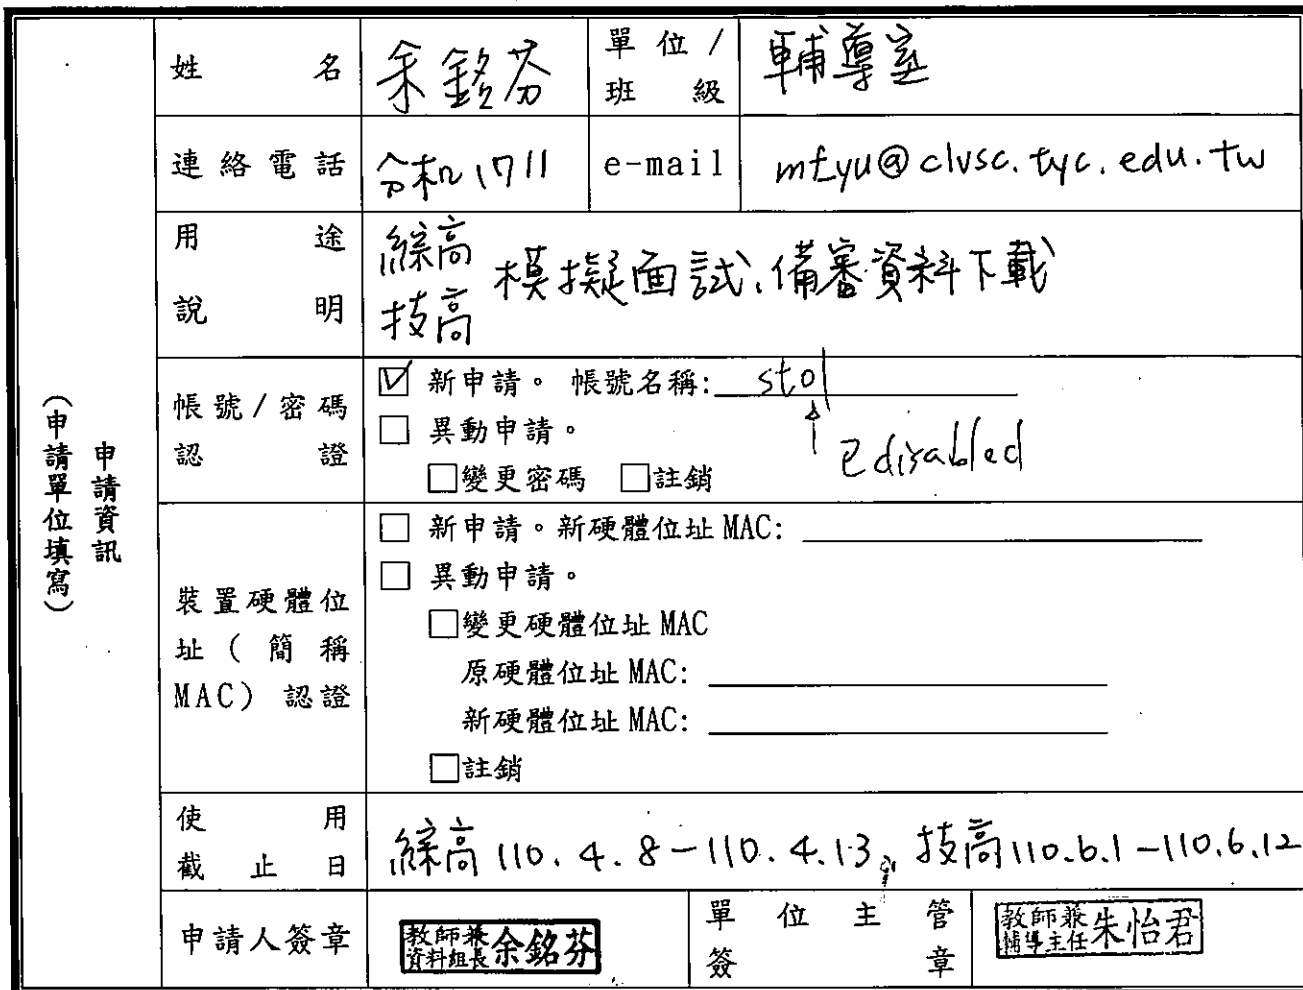 申請資訊
(申請單位填寫)
姓名 余銘芬 單位/班級 輔導室
連絡電話 分機1711 e-mail mfyu@clvsc.tyc.edu.tw
用途說明 綜高 技高 模擬面試、備審資料下載
帳號/密碼認證
☑ 新申請。 帳號名稱: sto1
□ 異動申請。
disabled
□變更密碼 □註銷
裝置硬體位址(簡稱MAC)認證
□ 新申請。新硬體位址 MAC:
□ 異動申請。
□變更硬體位址 MAC
原硬體位址 MAC:
新硬體位址 MAC:
□註銷
使用截止日 綜高 110.4.8-110.4.13, 技高 110.6.1-110.6.12
申請人簽章 教師兼資料組長 余銘芬 單位主管簽章 教師兼輔導主任 朱怡君